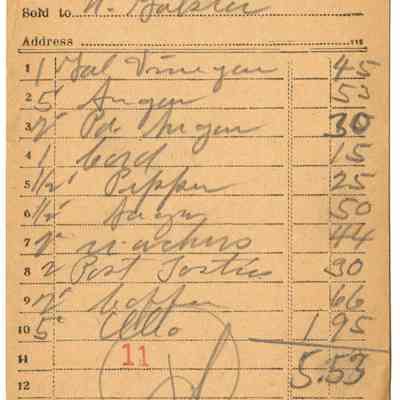 Sold to
Address
1 1 Gal Vinegar 45
2 5 Sugar 50
3 2 Pd. Sugar 30
4 1 Cord 15
5 1/2 Pepper 25
6 1/2 50
7 2 44
8 2 Post Tosties 30
9 2 Coffee 66
10 5 1 95
11 5.53
12 11